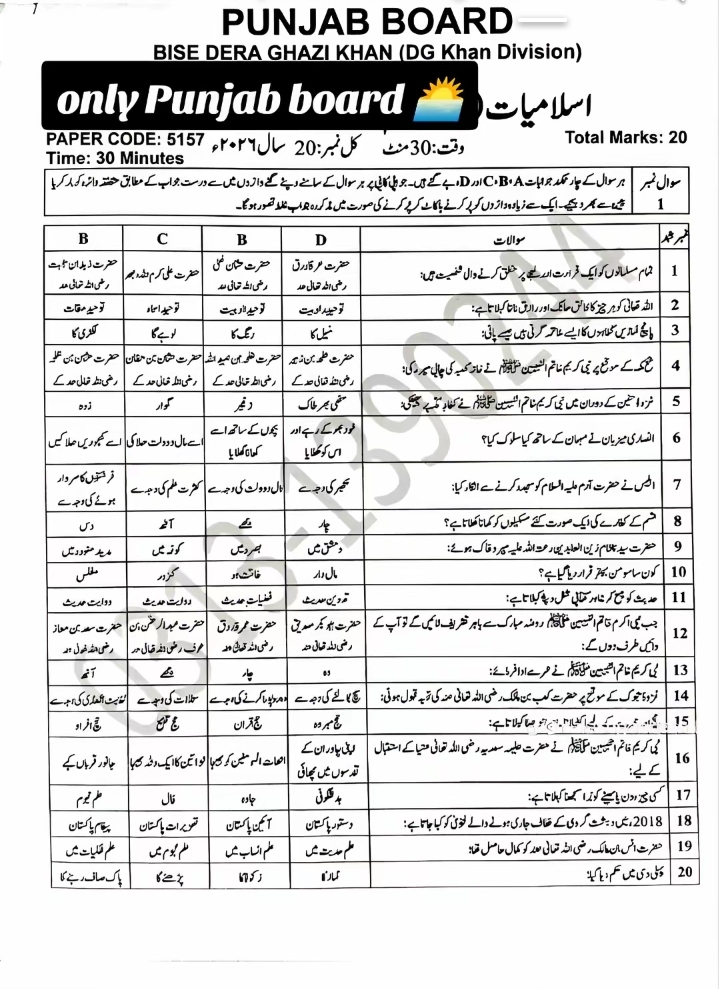 1
PUNJAB BOARD
BISE DERA GHAZI KHAN (DG Khan Division)
only Punjab board 🌅
اسلامیات
PAPER CODE: 5157
Time: 30 Minutes
وقت:30 منٹ کل نمبر:20 سال ۲۰۲۶ء
Total Marks: 20
سوال نمبر 1
ہر سوال کے چار ممکنہ جوابات A، B، C اور D دیے گئے ہیں۔ جوابی کاپی پر ہر سوال کے سامنے دیے گئے دائروں میں سے درست جواب کے مطابق متعلقہ دائرہ کو مارکر یا
پین سے بھر دیجیے۔ ایک سے زیادہ دائروں کو پُر کرنے یا کاٹ کر پُر کرنے کی صورت میں مذکورہ جواب غلط تصور ہوگا۔
نمبر شمار سوالات D B C B
1 تمام مسلمانوں کو ایک قراءت اور لہجے پر متفق کرنے والی شخصیت ہیں: حضرت عمر فاروق رضی اللہ تعالی عنہ حضرت عثان غنی رضی اللہ تعالی عنہ حضرت علی کرم اللہ وجہہ حضرت زید ابن ثابت رضی اللہ تعالی عنہ
2 اللہ تعالی کو ہر چیز کا خالق مالک اور رازق ماننا کہلاتا ہے: توحید ربوبیت توحید الوہیت توحید اسماء توحید صفات
3 پانچ نمازیں گناہوں کا ایسے خاتمہ کرتی ہیں جیسے پانی: میل کا رنگ کا لوہے کا لکڑی کا
4 فتح مکہ کے موقع پر نبی کریم خاتم النبیین ﷺ نے خانہ کعبہ کی چابی سپرد کی: حضرت طلحہ بن زبیر رضی اللہ تعالی عنہ کے حضرت طلحہ بن عبید اللہ رضی اللہ تعالی عنہ کے حضرت عثمان بن عفان رضی اللہ تعالی عنہ کے حضرت عثمان بن طلحہ رضی اللہ تعالی عنہ کے
5 غزوہ حنین کے دوران میں نبی کریم خاتم النبیین ﷺ نے کفار پر پھینکی: مٹھی بھر خاک تلوار زرہ
6 انصاری میزبان نے مہمان کے ساتھ کیا سلوک کیا؟ خود بھوکے رہے اور اس کو کھلایا بچوں کے ساتھ اسے کھانا کھلایا اسے مال و دولت عطا کی اسے کھجوریں عطا کیں
7 ابلیس نے حضرت آدم علیہ السلام کو سجدہ کرنے سے انکار کیا: تکبر کی وجہ سے مال و دولت کی وجہ سے کثرت علم کی وجہ سے فرشتوں کا سردار ہونے کی وجہ سے
8 قسم کے کفارے کی ایک صورت کتنے مسکینوں کو کھانا کھلانا ہے؟ چار چھے آٹھ دس
9 حضرت سیدنا امام زین العابدین رحمۃ اللہ علیہ مدفون ہوئے: دمشق میں بصرہ میں کوفہ میں مدینہ منورہ میں
10 کون سا مومن بہتر قرار دیا گیا ہے؟ مال دار طاقت ور کمزور مفلس
11 حدیث کو جمع کر کے کتابی شکل دینا کہلاتا ہے: تدوین حدیث روایت حدیث
12 جب نبی اکرم خاتم النبیین ﷺ روضہ مبارک سے باہر تشریف لائیں گے تو آپ کے دائیں طرف ہوں گے: حضرت ابوبکر صدیق رضی اللہ تعالی عنہ حضرت عمر فاروق رضی اللہ تعالی عنہ حضرت عبد الرحمٰن بن عوف رضی اللہ تعالی عنہ حضرت سعد بن معاذ رضی اللہ تعالی عنہ
13 نبی کریم خاتم النبیین ﷺ نے عمرے ادا فرمائے: دو چار چھے آٹھ
14 غزوہ تبوک کے موقع پر حضرت کعب بن مالک رضی اللہ تعالی عنہ کی توبہ قبول ہوئی: سچ کی وجہ سے
15 حج مبرور حج قران حج تمتع حج افراد
16 نبی کریم خاتم النبیین ﷺ نے حضرت حلیمہ سعدیہ رضی اللہ تعالی عنہا کے استقبال کے لیے: اپنی چادر ان کے قدموں میں بچھائی امہات المومنین کو بھیجا خواتین کا ایک وفد بھیجا جانور قربان کیے
17 کسی چیز، دن یا مہینے کو بُرا سمجھنا کہلاتا ہے: بدشگونی جادو فال علم نجوم
18 2018ء میں دہشت گردی کے خلاف جاری ہونے والے فتویٰ کو کہا جاتا ہے: دستور پاکستان آئین پاکستان تعزیرات پاکستان پیغام پاکستان
19 حضرت انس بن مالک رضی اللہ تعالی عنہ کو کمال حاصل تھا: علم حدیث میں علم انساب میں علم نجوم میں علم فلکیات میں
20 پہلی وحی میں حکم دیا گیا: نماز کا زکوٰۃ کا پڑھنے کا پاک صاف رہنے کا
0313-1390244